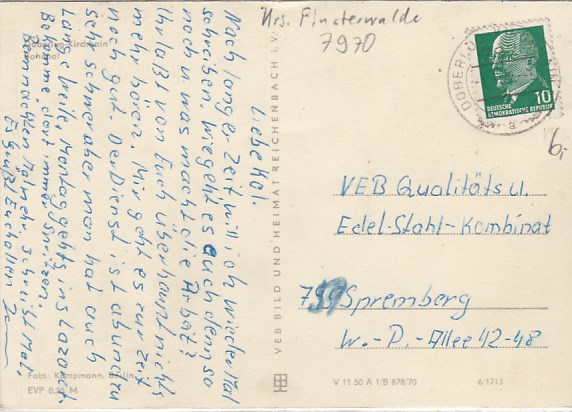 Krs. Finsterwalde
7970
Doberlug-Kirchhain
Liebe Kol.
Nach langer Zeit will ich wieder Mal
schreiben. Wie geht es Euch denn so
noch u. was macht die Arbeit?
Ihr laßt von Euch überhaupt nichts
mehr hören. Mir geht es zur Zeit
noch gut. Der Dienst ist ab und zu
sehr schwer aber man hat auch
Lange Weile. Montag gehts ins Lazarett
Bekomme dort immer Spritzen.
Es Grüßt Euch allen
Foto: Kampmann, Berlin
EVP 0,20 M
VEB BILD UND HEIMAT REICHENBACH I. V.
DEUTSCHE
DEMOKRATISCHE REPUBLIK
10
6,-
VEB Qualitäts u.
Edel-Stahl-Kombinat
759 Spremberg
W.-P.-Allee 42-48
V 11 50 A 1/B 878/70
6/1713